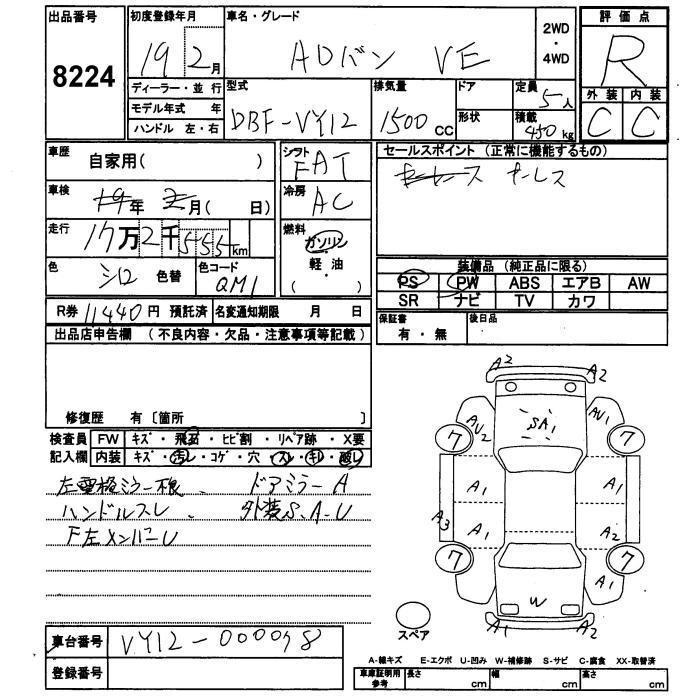 出品番号 8224
初度登録年月 19 2 月
車名・グレード ADバン VE
2WD ・ 4WD
評価点 R
外装 C 内装 C
ディーラー・並行
モデル年式 年
ハンドル 左・右
型式 DBF-VY12
排気量 1500 CC
ドア
形状
定員 5人
積載 450 kg
車歴 自家用( )
シフト FAT
セールスポイント (正常に機能するもの)
キーレス
車検 19年 2月( 日)
冷房 AC
走行 17万2千555km
燃料 ガソリン 軽油 ( )
色 シロ 色替
色コード QM1
装備品 (純正品に限る)
PS PW ABS エアB AW
SR ナビ TV カワ
R券 11440円 預託済 名変通知期限 月 日
保証書 有・無
後日品
出品店申告欄 (不良内容・欠品・注意事項等記載)
修復歴 有〔箇所 〕
検査員 FW キズ・飛石・ヒビ割・リペア跡・X要
記入欄 内装 キズ・汚レ・コゲ・穴・スレ・キレ・
左電格ミラー
ドアミラーA
ハンドルスレ、
外装S、A-U
F左メンバーU
A2 A2
AU2 SA1 AU1
7 7
A1 A1
A3 A1 A2
7 7
A1
W
A1 A2
スペア
車台番号 VY12-000078
登録番号
A-線キズ E-エクボ U-凹み W-補修跡 S-サビ C-腐食 XX-取替済
車庫証明用参考 長さ cm 幅 cm 高さ cm